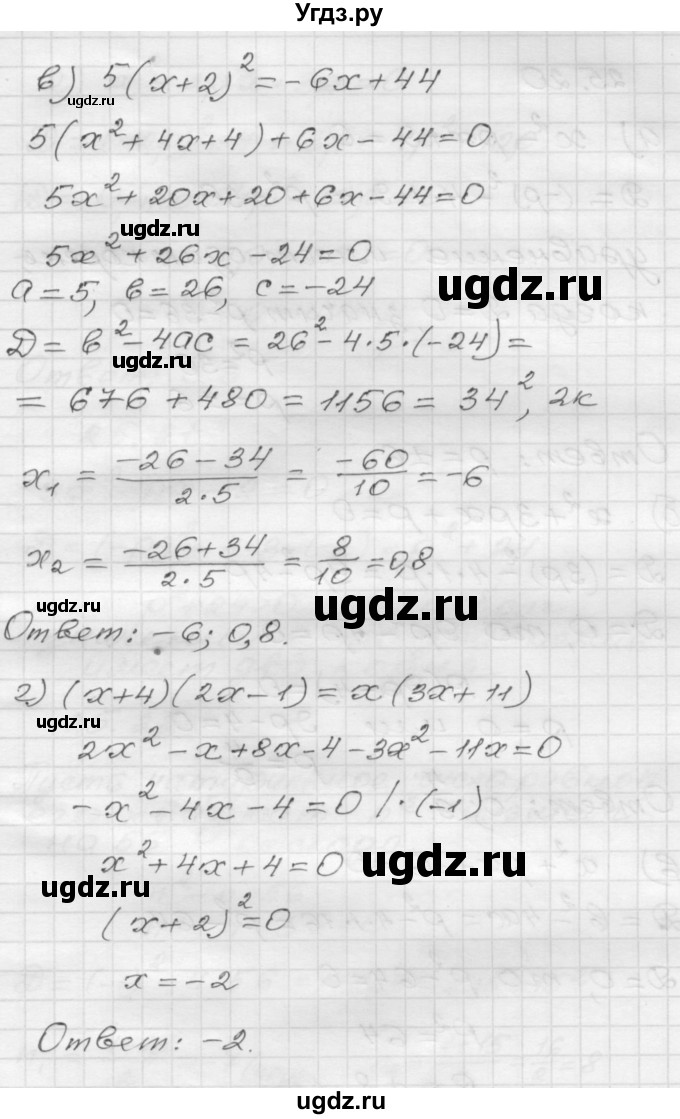 Угдз.ру
в) 5(x+2)² = -6x+44
ugdz.ru
5(x²+4x+4)+6x-44=0
5x²+20x+20+6x-44=0
ugdz.ru
5x²+26x-24=0
ugdz.ru
a=5, в=26, c=-24
Д= в²-4ac = 26²-4·5·(-24)=
= 676+480=1156=34², 2к
x₁ = (-26-34)/(2·5) = (-60)/10 = -6
x₂ = (-26+34)/(2·5) = 8/10 = 0,8
ugdz.ru
ugdz.ru
Ответ: -6; 0,8.
г) (x+4)(2x-1)=x(3x+11)
2x²-x+8x-4-3x²-11x=0
-x²-4x-4=0 /·(-1)
x²+4x+4=0
ugdz.ru
ugdz.ru
(x+2)²=0
x=-2
Ответ: -2.
ugdz.ru